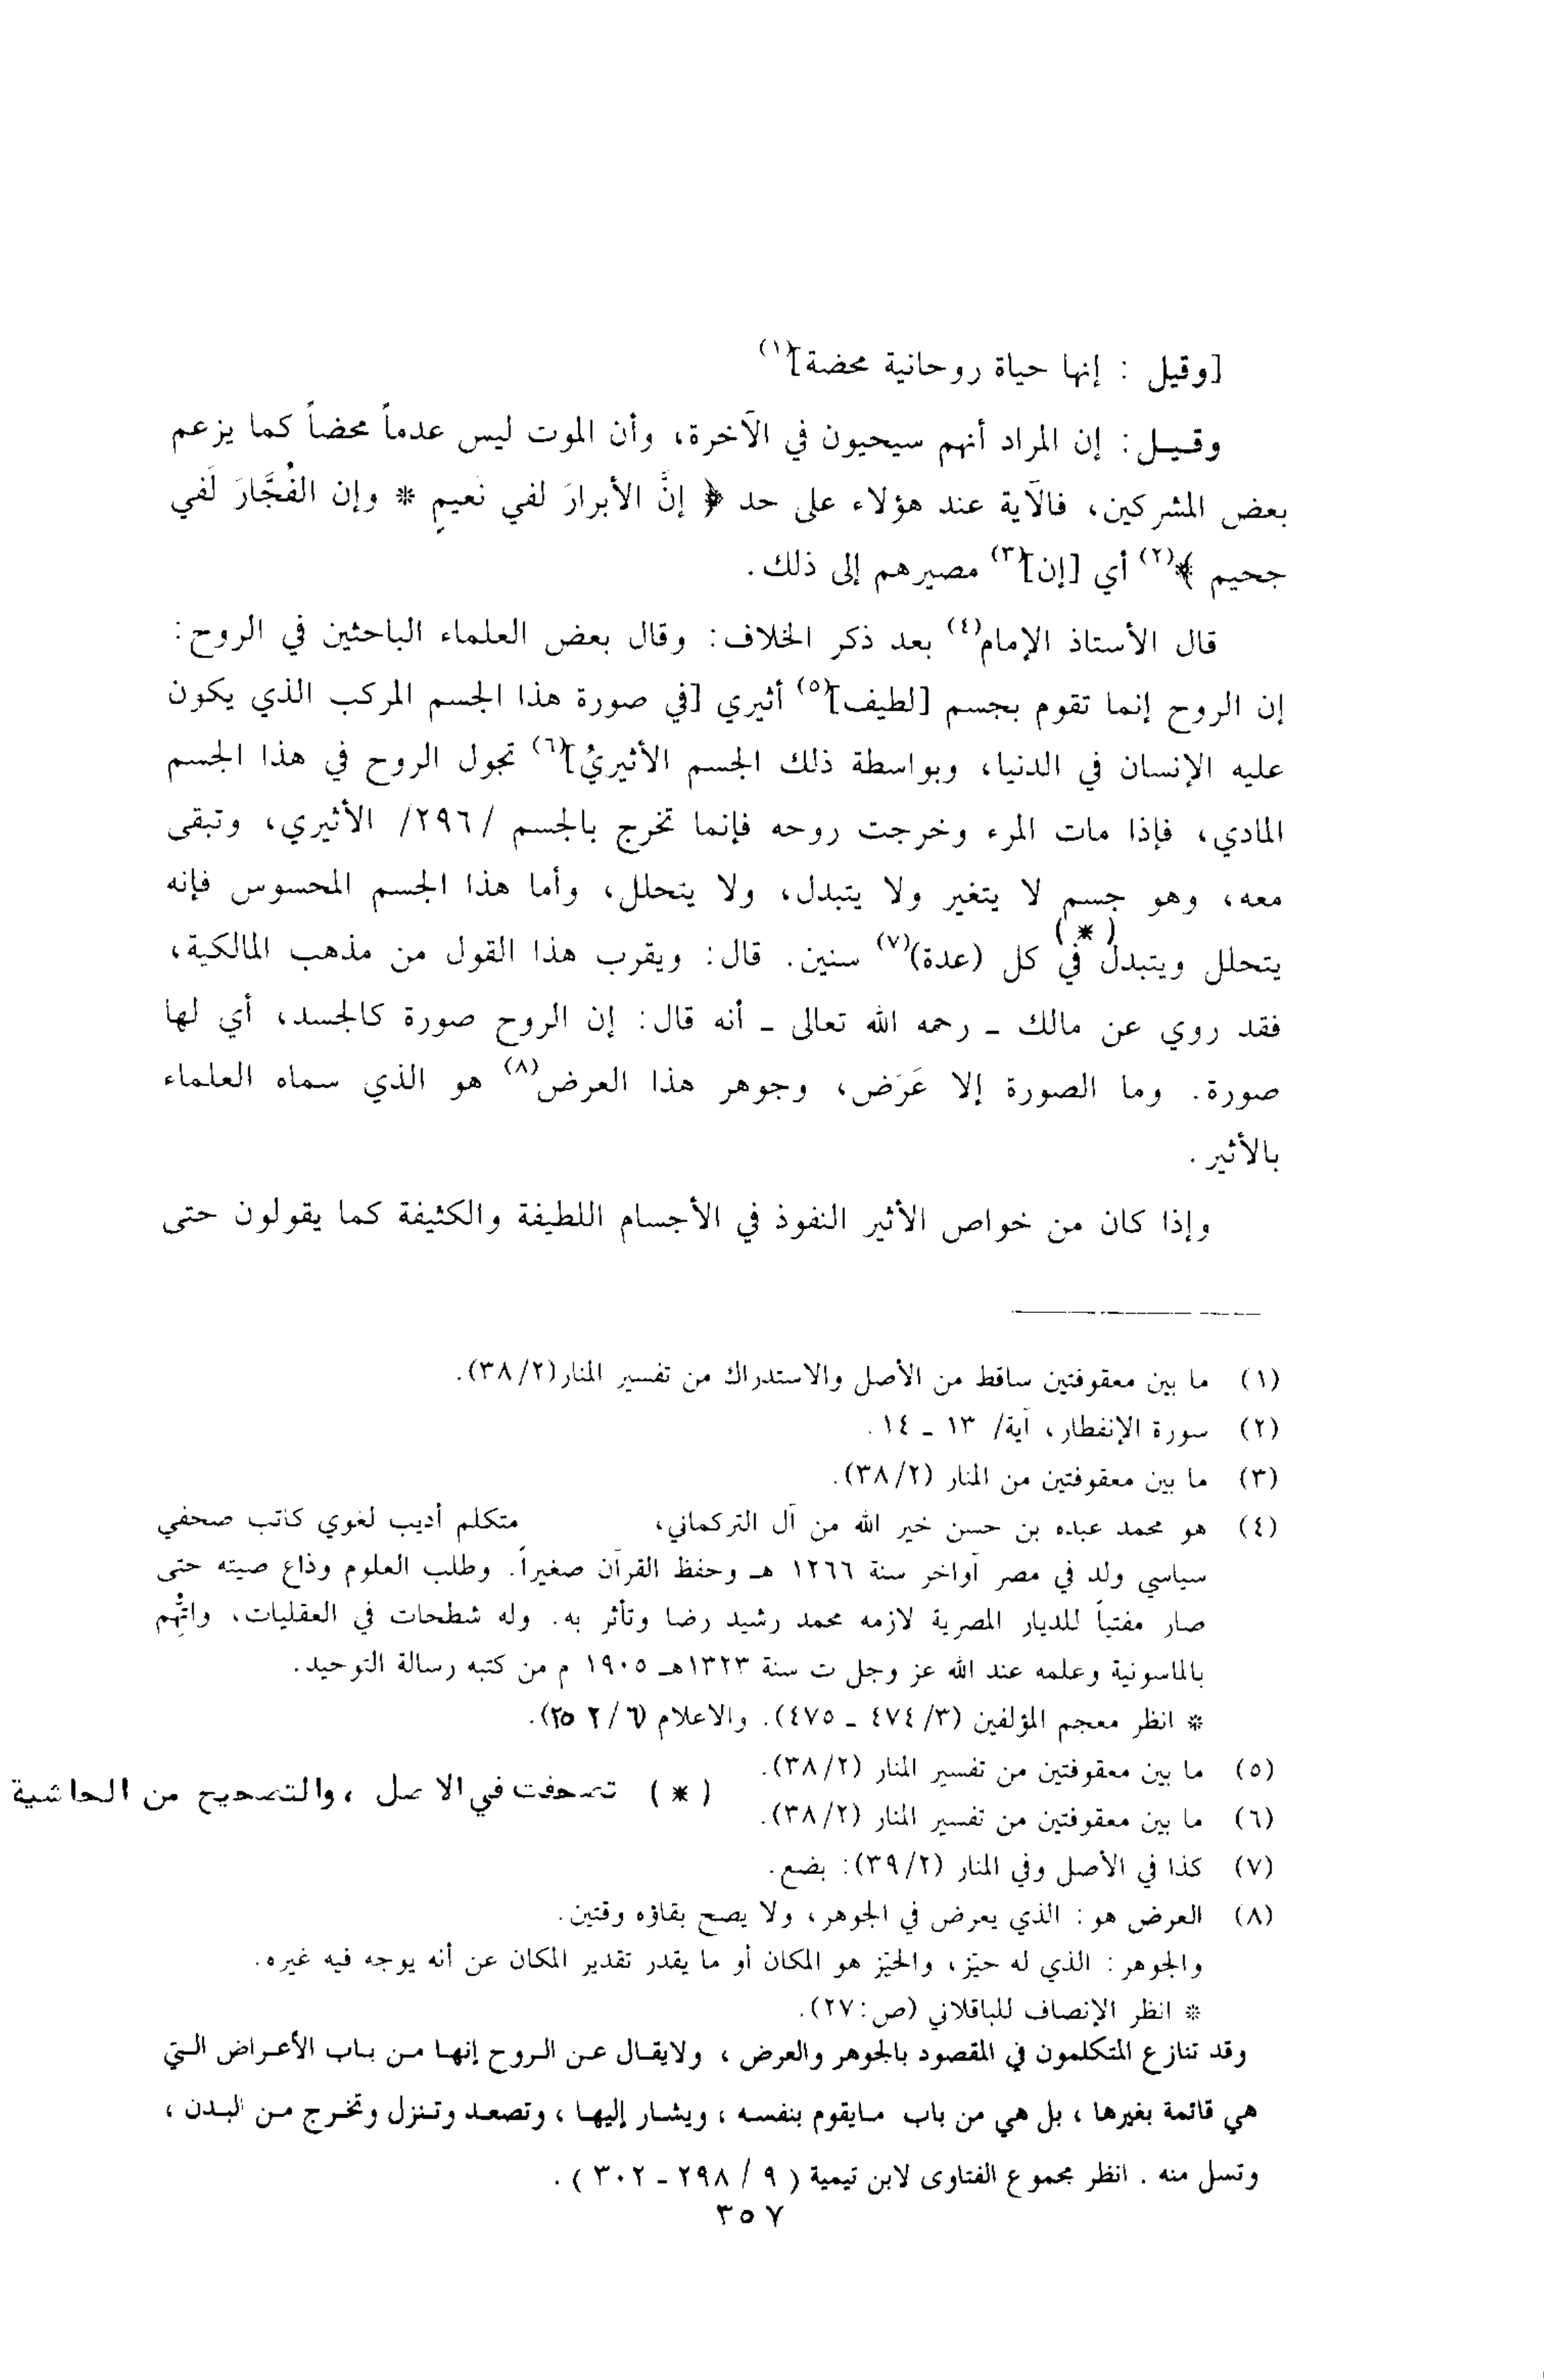 [وقيل : إنها حياة روحانية محضة](١)
وقيل : إن المراد أنهم سيحيون في الآخرة، وأن الموت ليس عدماً محضاً كما يزعم
بعض المشركين، فالآية عند هؤلاء على حد ﴿ إنَّ الأبرارَ لفي نَعيمٍ * وإن الفُجَّارَ لَفي
جحيم ﴾(٢) أي [إن](٣) مصيرهم إلى ذلك.
قال الأستاذ الإمام(٤) بعد ذكر الخلاف: وقال بعض العلماء الباحثين في الروح:
إن الروح إنما تقوم بجسم [لطيف](٥) أثيري [في صورة هذا الجسم المركب الذي يكون
عليه الإنسان في الدنيا، وبواسطة ذلك الجسم الأثيريُ](٦) تجول الروح في هذا الجسم
المادي، فإذا مات المرء وخرجت روحه فإنما تخرج بالجسم /٢٩٦/ الأثيري، وتبقى
معه، وهو جسم لا يتغير ولا يتبدل، ولا يتحلل، وأما هذا الجسم المحسوس فإنه
يتحلل ويتبدل(*) في كل (عدة)(٧) سنين. قال: ويقرب هذا القول من مذهب المالكية،
فقد روي عن مالك ـ رحمه الله تعالى ـ أنه قال: إن الروح صورة كالجسد، أي لها
صورة. وما الصورة إلا عَرَض، وجوهر هذا العرض(٨) هو الذي سماه العلماء
بالأثير.
وإذا كان من خواص الأثير النفوذ في الأجسام اللطيفة والكثيفة كما يقولون حتى
(١) ما بين معقوفتين ساقط من الأصل والاستدراك من تفسير المنار (٣٨/٢).
(٢) سورة الإنفطار، آية/ ١٣ ـ ١٤.
(٣) ما بين معقوفتين من المنار (٣٨/٢).
(٤) هو محمد عبده بن حسن خير الله من آل التركماني، متكلم أديب لغوي كاتب صحفي
سياسي ولد في مصر آواخر سنة ١٢٦٦ هـ وحفظ القرآن صغيراً. وطلب العلوم وذاع صيته حتى
صار مفتياً للديار المصرية لازمه محمد رشيد رضا وتأثر به. وله شطحات في العقليات، واتُّهِم
بالماسونية وعلمه عند الله عز وجل ت سنة ١٣٢٣هـ ١٩٠٥ م من كتبه رسالة التوحيد.
* انظر معجم المؤلفين (٤٧٤/٣ ـ ٤٧٥). والاعلام (٦/ ٢٥٢).
(٥) ما بين معقوفتين من تفسير المنار (٣٨/٢).
(*) تصحفت في الاصل ، والتصحيح من الحاشية
(٦) ما بين معقوفتين من تفسير المنار (٣٨/٢).
(٧) كذا في الأصل وفي المنار (٣٩/٢): بضع.
(٨) العرض هو: الذي يعرض في الجوهر، ولا يصح بقاؤه وقتين.
والجوهر: الذي له حيّز، والحيّز هو المكان أو ما يقدر تقدير المكان عن أنه يوجه فيه غيره.
* انظر الإنصاف للباقلاني (ص:٢٧).
وقد تنازع المتكلمون في المقصود بالجوهر والعرض ، ولايقال عن الروح إنها من باب الأعراض التي
هي قائمة بغيرها ، بل هي من باب مايقوم بنفسه ، ويشار إليها ، وتصعد وتنزل وتخرج من البدن ،
وتسل منه . انظر مجموع الفتاوى لابن تيمية ( ٩ / ٢٩٨ - ٣٠٢ ) .
٣٥٧